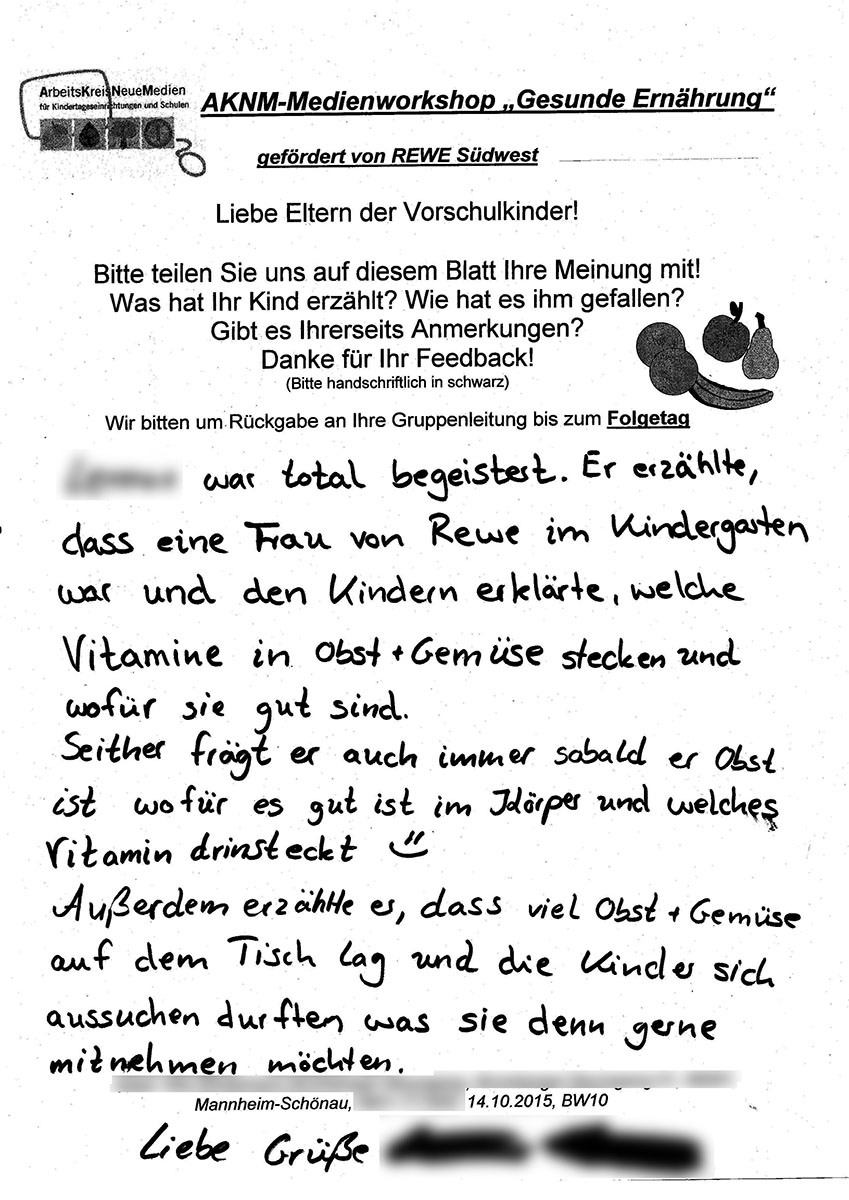 ArbeitsKreisNeueMedien
für Kindertageseinrichtungen und Schulen
AKNM-Medienworkshop „Gesunde Ernährung“
gefördert von REWE Südwest
Liebe Eltern der Vorschulkinder!
Bitte teilen Sie uns auf diesem Blatt Ihre Meinung mit!
Was hat Ihr Kind erzählt? Wie hat es ihm gefallen?
Gibt es Ihrerseits Anmerkungen?
Danke für Ihr Feedback!
(Bitte handschriftlich in schwarz)
Wir bitten um Rückgabe an Ihre Gruppenleitung bis zum Folgetag
war total begeistert. Er erzählte,
dass eine Frau von Rewe im Kindergarten
war und den Kindern erklärte, welche
Vitamine in Obst + Gemüse stecken und
wofür sie gut sind.
Seither frägt er auch immer sobald er Obst
ist wofür es gut ist im Körper und welches
Vitamin drinsteckt
Außerdem erzählte er, dass viel Obst + Gemüse
auf dem Tisch lag und die Kinder sich
aussuchen durften was sie denn gerne
mitnehmen möchten.
Mannheim-Schönau, 14.10.2015, BW10
Liebe Grüße